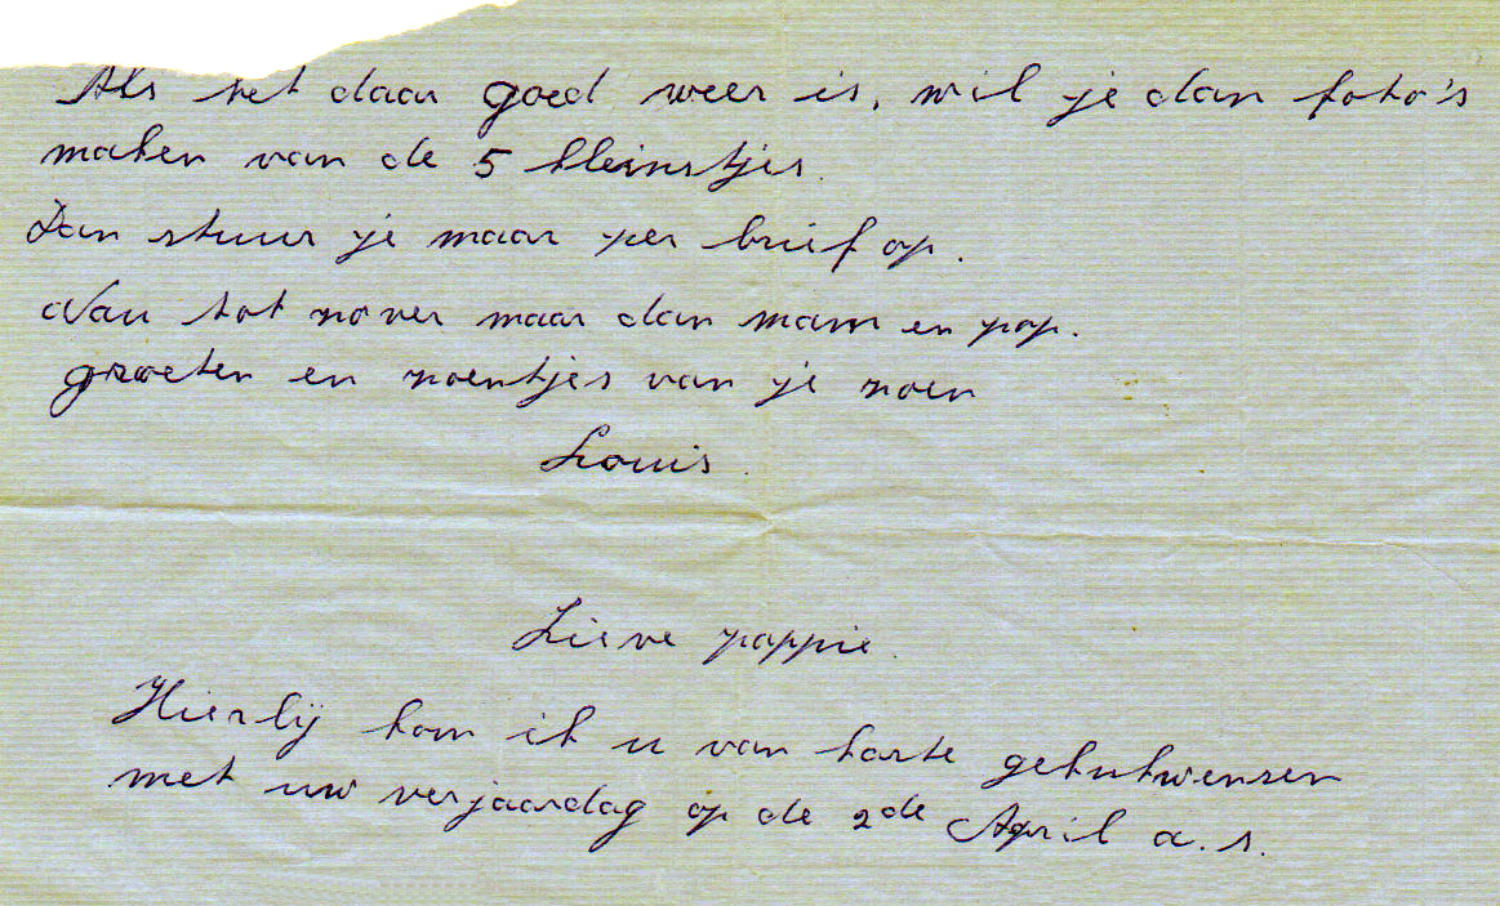 Als het daar goed weer is, wil je dan foto's
maken van de 5 kleinstjes.
Dan stuur je maar per brief op.
Nou tot zover maar dan mam en pap.
groeten en zoentjes van je zoen
Louis.
Lieve pappie.
Hierbij kom ik u van harte gelukwensen
met uw verjaardag op de 2de April a.s.